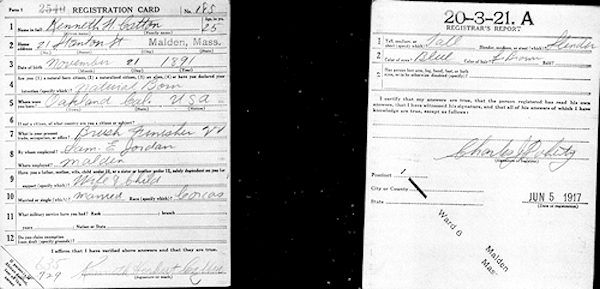 Form 1 2540 REGISTRATION CARD No. 185
1 Name in full Kenneth W. Cotton Age, in yrs. 25
(Given name) (Family name)
2 Home address 21 Stanton St Malden, Mass.
(No.) (Street) (City) (State)
3 Date of birth November 21 1891
(Month) (Day) (Year)
4 Are you (1) a natural born citizen, (2) a naturalized citizen, (3) an alien, (4) or have you declared your
intention (specify which)? Natural Born
5 Where were you born? Oakland Cal. USA
(Town) (State) (Nation)
6 If not a citizen, of what country are you a citizen or subject?
7 What is your present trade, occupation, or office? Brush Finisher
8 By whom employed? Sam. E. Jordan
Where employed? Malden
9 Have you a father, mother, wife, child under 12, or a sister or brother under 12, solely dependent on you for
support (specify which)? Wife & Child
10 Married or single (which)? Married Race (specify which)?
11 What military service have you had? Rank branch
years Nation or State
12 Do you claim exemption from draft (specify grounds)?
I affirm that I have verified above answers and that they are true.
(Signature or mark)
20-3-21. A
REGISTRAR'S REPORT
1 Tall, medium, or short (specify which)? Tall Slender, medium, or stout (which)? Slender
2 Color of eyes? Blue Color of hair? Brown Bald?
3 Has person lost arm, leg, hand, foot, or both
eyes, or is he otherwise disabled (specify)?
I certify that my answers are true, that the person registered has read his own
answers, that I have witnessed his signature, and that all of his answers of which I have
knowledge are true, except as follows:
Charles J Doherty
(Signature of registrar)
Precinct 1
City or County
State
JUN 5 1917
(Date of registration)
Ward 6
Malden
Mass